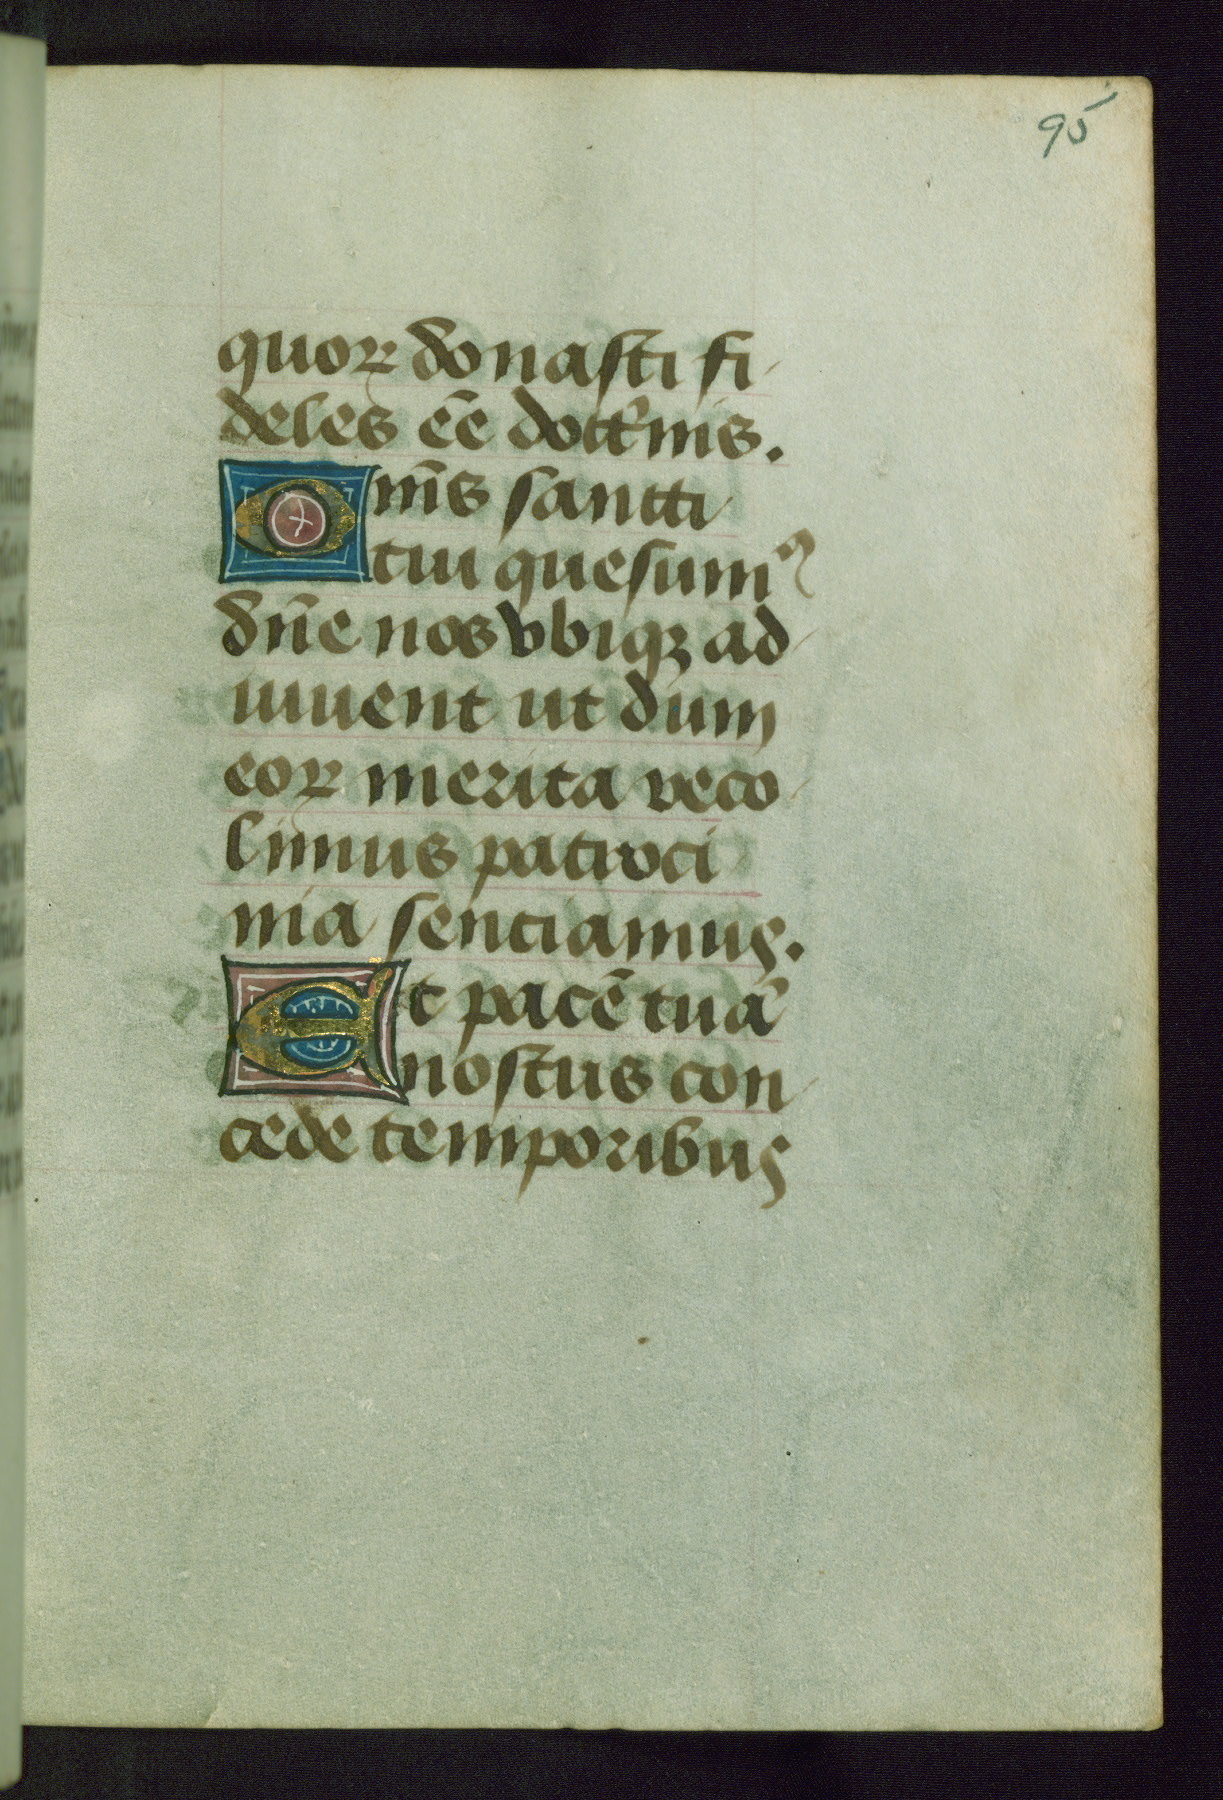 95
quoꝝ donasti fi
deles eē̄ doctͥnis.
Omēs sancti
tui quesumꝰ
dn̄e nos vbiqꝫ ad
iuuent ut dum
eoꝝ merita reco
limus patroci
nia senciamus.
Et pacē tuā
nostris con
cede temporibus